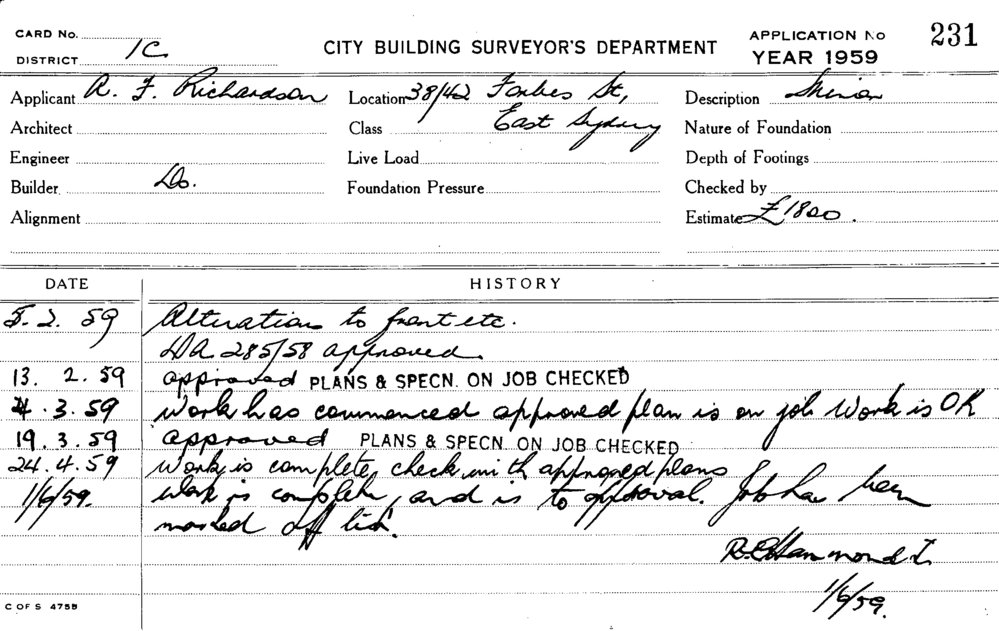 CARD No.
DISTRICT 1C
CITY BUILDING SURVEYOR'S DEPARTMENT
APPLICATION No 231
YEAR 1959
Applicant R. F. Richardson
Location 38/42 Forbes St,
East Sydney
Description Minor
Architect
Class
Nature of Foundation
Engineer
Live Load
Depth of Footings
Builder Do.
Foundation Pressure
Checked by
Alignment
Estimate £1800.
DATE HISTORY
5. 2. 59 Alterations to front etc.
DA 285/58 approved.
13. 2. 59 approved PLANS & SPECN. ON JOB CHECKED
4. 3. 59 Work has commenced approved plan is on job Work is OK
19. 3. 59 approved PLANS & SPECN. ON JOB CHECKED
24. 4. 59 Work is complete, check with approved plans
1/6/59. Work is complete, and is to approval. Job has been
marked off list.
Hammond
1/6/59.
C OF S 4755